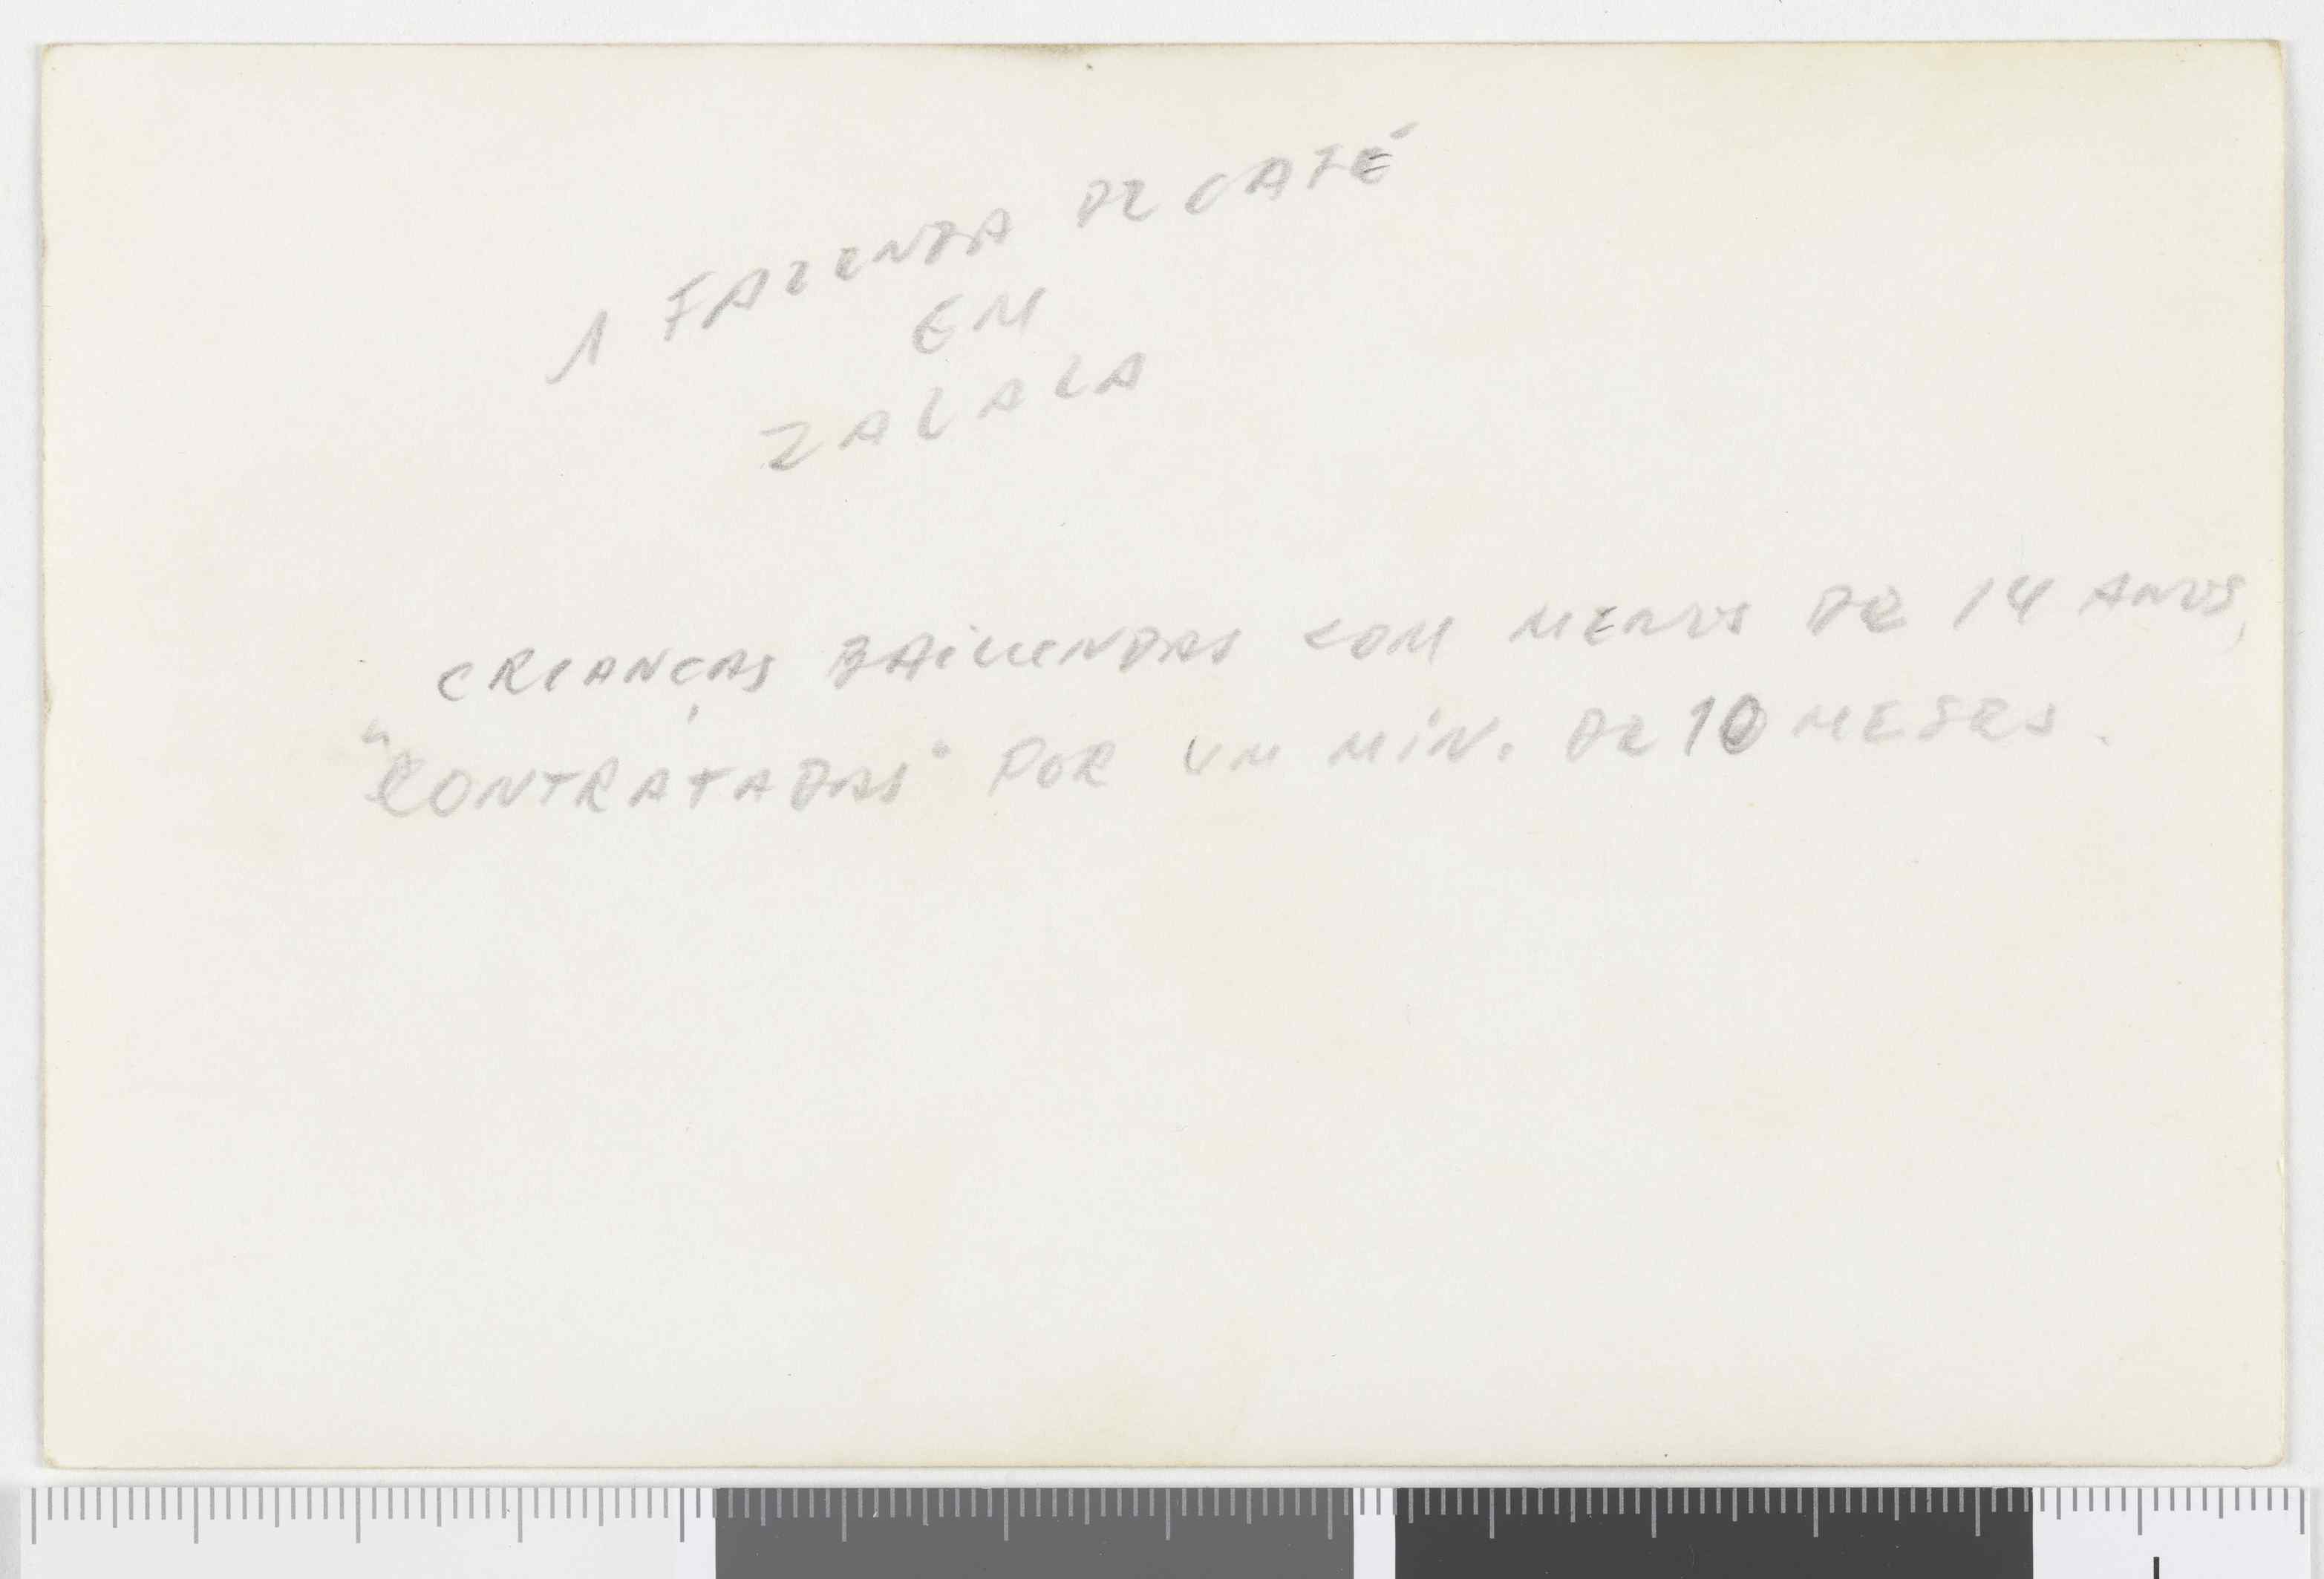 1 FAZENDA DE CAFÉ
EM
ZALALA
CRIANÇAS BAILUNDAS COM MENOS DE 14 ANOS,
"CONTRATADAS" POR UM MÍN. DE 10 MESES.